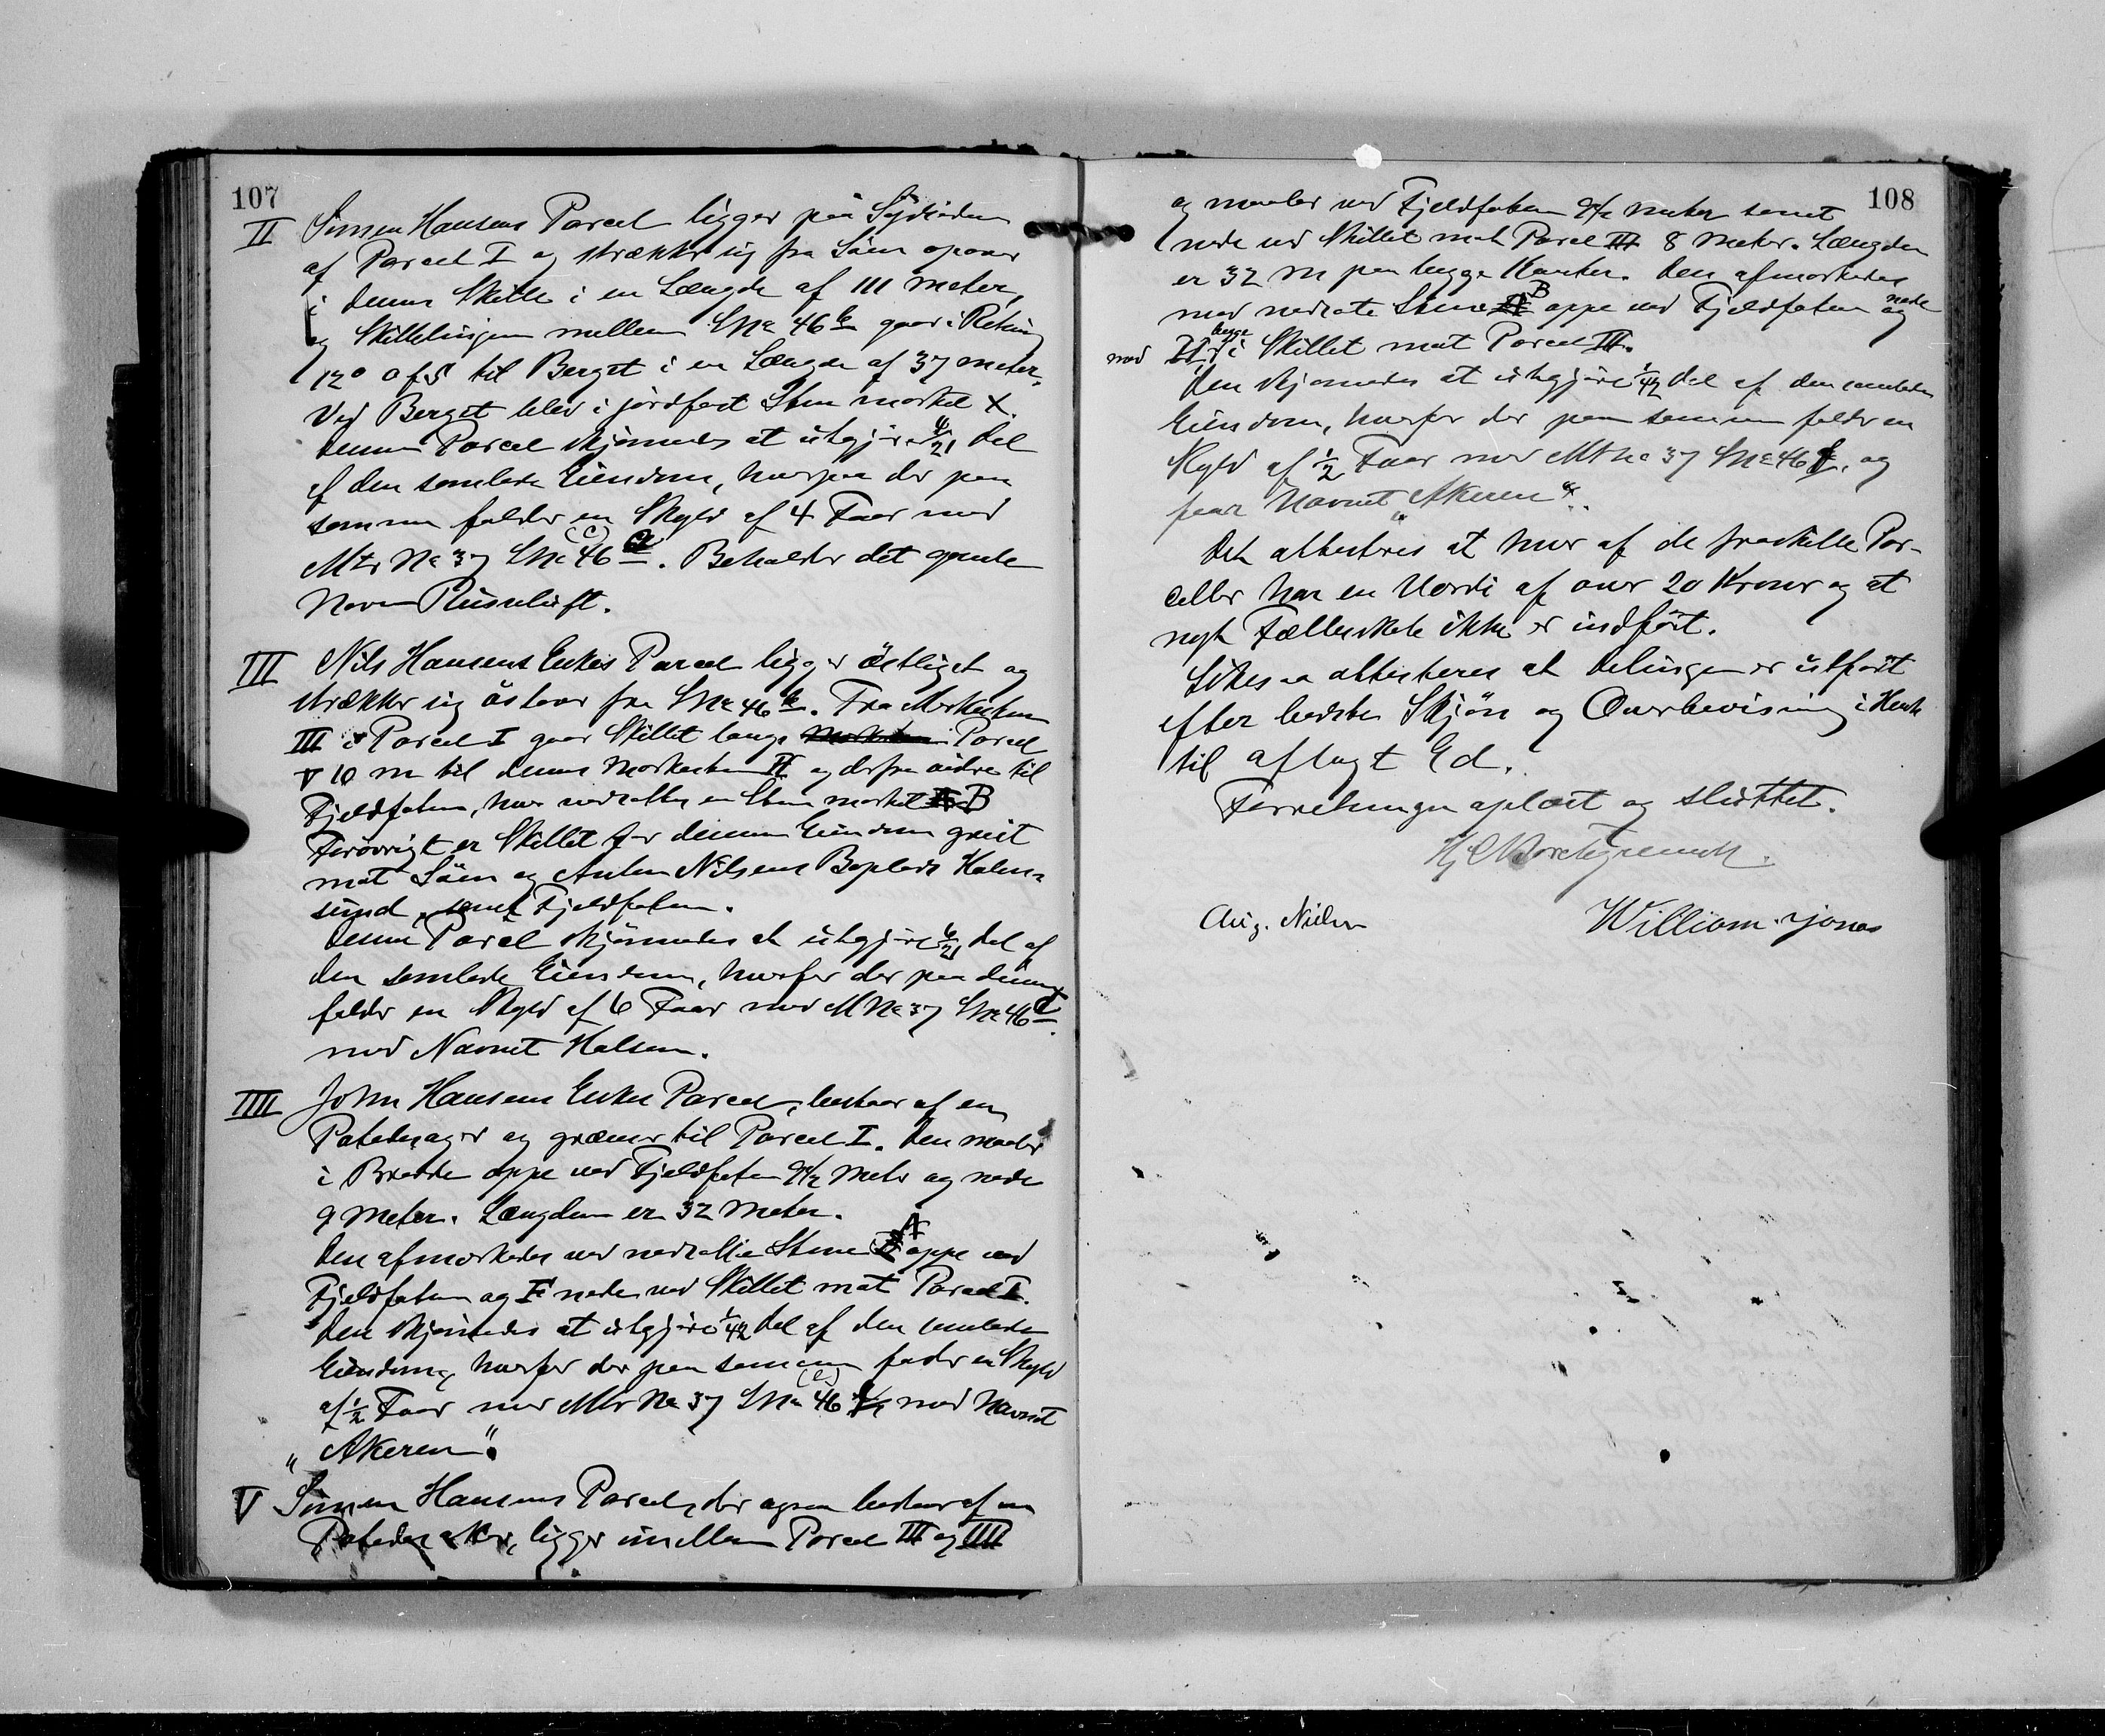 107
II Simen Hansens Parcel ligger på Sydsiden
af Parcel I og strækker sig fra Søen opover
i denne Skille i en Længde af 111 meter,
og Skillelinjen mellem LNo 46 b gaar i Retning
12° O f S til Berget i en Længde af 37 meter.
Ved Berget blev i jordfast Sten merket X.
Denne Parcel skjønnedes at utgjøre 4/21 Del
af den samlede Eiendom, hvorfor der paa
samme falder en Skyld af 4 Øre med
Mtr No 37 LNo 46 (c). Beholder det gamle
Navn Rüsnluft.
III Nils Hansens Enkes Parcel ligger østligst og
strækker sig østover fra LNo 46 b. Fra Merkesten
III i Parcel I gaar Skillet langs Parcel
V 10 m til denne Merkesten II og derfra videre til
Fjeldfoten, hvor nedsattes en Sten merket B
Forøvrigt er Skillet for denne Eiendom greit
mot Søen og Anton Nilsens Boplads Holm-
sund, samt Fjeldfoten.
Denne Parcel skjønnedes at utgjøre 6/21 Del af
den samlede Eiendom, hvorfor der paa denne
falder en Skyld af 6 Øre med MNo 37 LNo 46
med Navnet Halsen.
IIII John Hansens Enkes Parcel, bestaar af en
Potetesager og grænser til Parcel I. Den maaler
i Bredde oppe ved Fjeldfoten 9 1/2 Meter og nede
9 Meter. Længden er 32 Meter.
Den afmerkedes ved nedsatte Stene A oppe ved
Fjeldfoten og F nede ved Skillet mot Parcel I.
Den skjønnedes at utgjøre 1/42 Del af den samlede
Eiendom, hvorfor der paa samme falder en Skyld
af 1/2 Øre med Mtr No 37 LNo 46 (e) med Navnet
"Akeren".
V Simen Hansens Parcel, der ogsaa bestaar af en
Potedesaker, ligger imellem Parcel III og IIII
108
og maaler ved Fjeldfoten 9 1/2 meter samt
nede ved Skillet mot Parcel III 8 Meter. Længden
er 32 m paa begge Kanter. Den afmerkedes
med nedsatte Stene B oppe ved Fjeldfoten og nede
med II, begge i Skillet mot Parcel III.
Den skjønnedes at utgjøre 1/42 Del af den samlede
Eiendom, hvorfor der paa samme falder en
Skyld af 1/2 Øre med Mtr No 37 LNo 46 f, og
faar Navnet "Akeren".
Det attesteres at hver af de fraskilte Par-
celler har en Værdi af over 20 Kroner og at
nyt Fællesskab ikke er indført.
Likesaa attesteres at Delingen er utført
efter bedste Skjøn og Overbevisning i Henh.
til aflagt Ed.
Forretningen oplæst og sluttet.
Hj. C. Borchgrevink.
Aug. Nielsen William Jonas